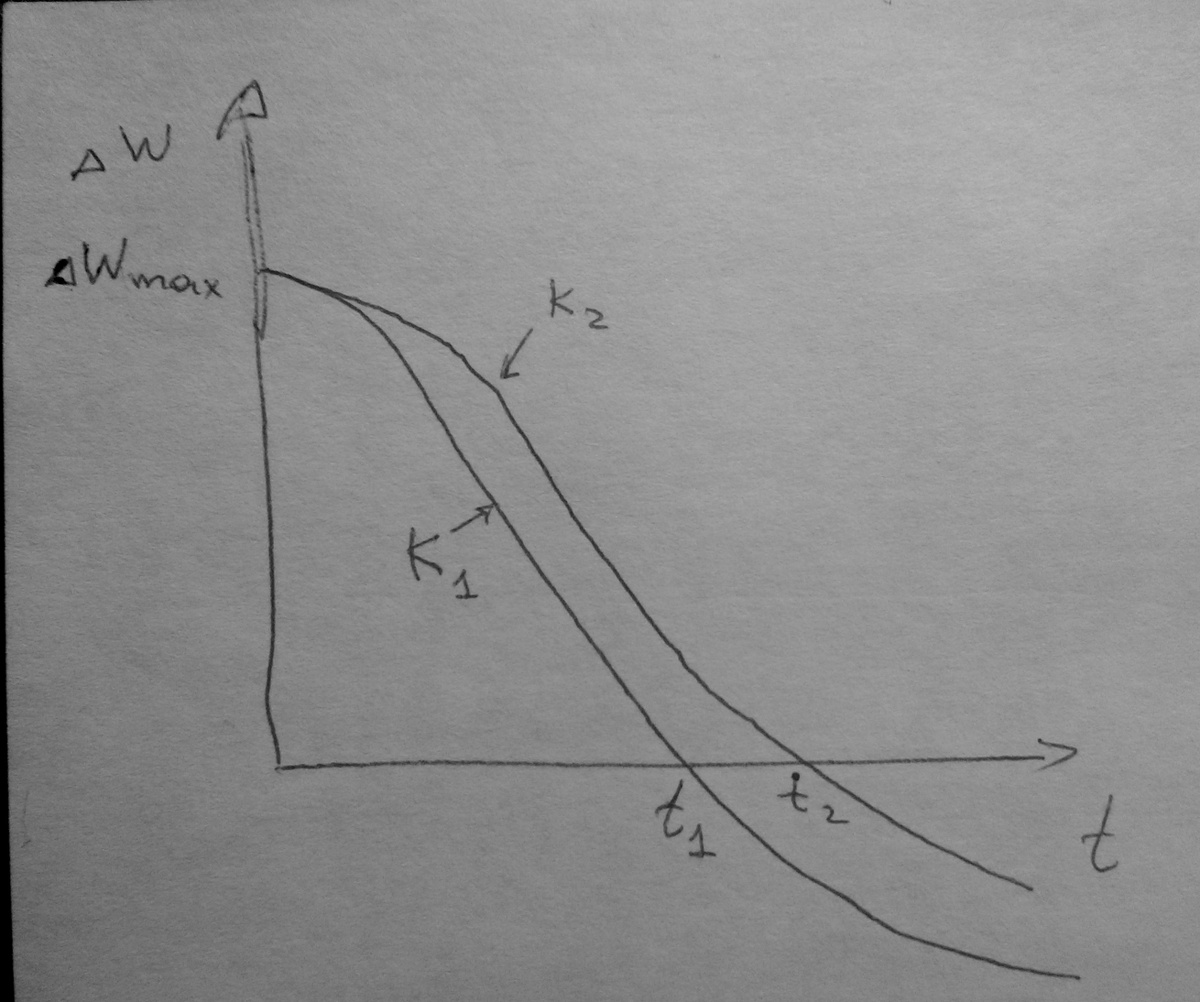 ΔW
ΔWmax
K₂
K₁
t₁
t₂
t